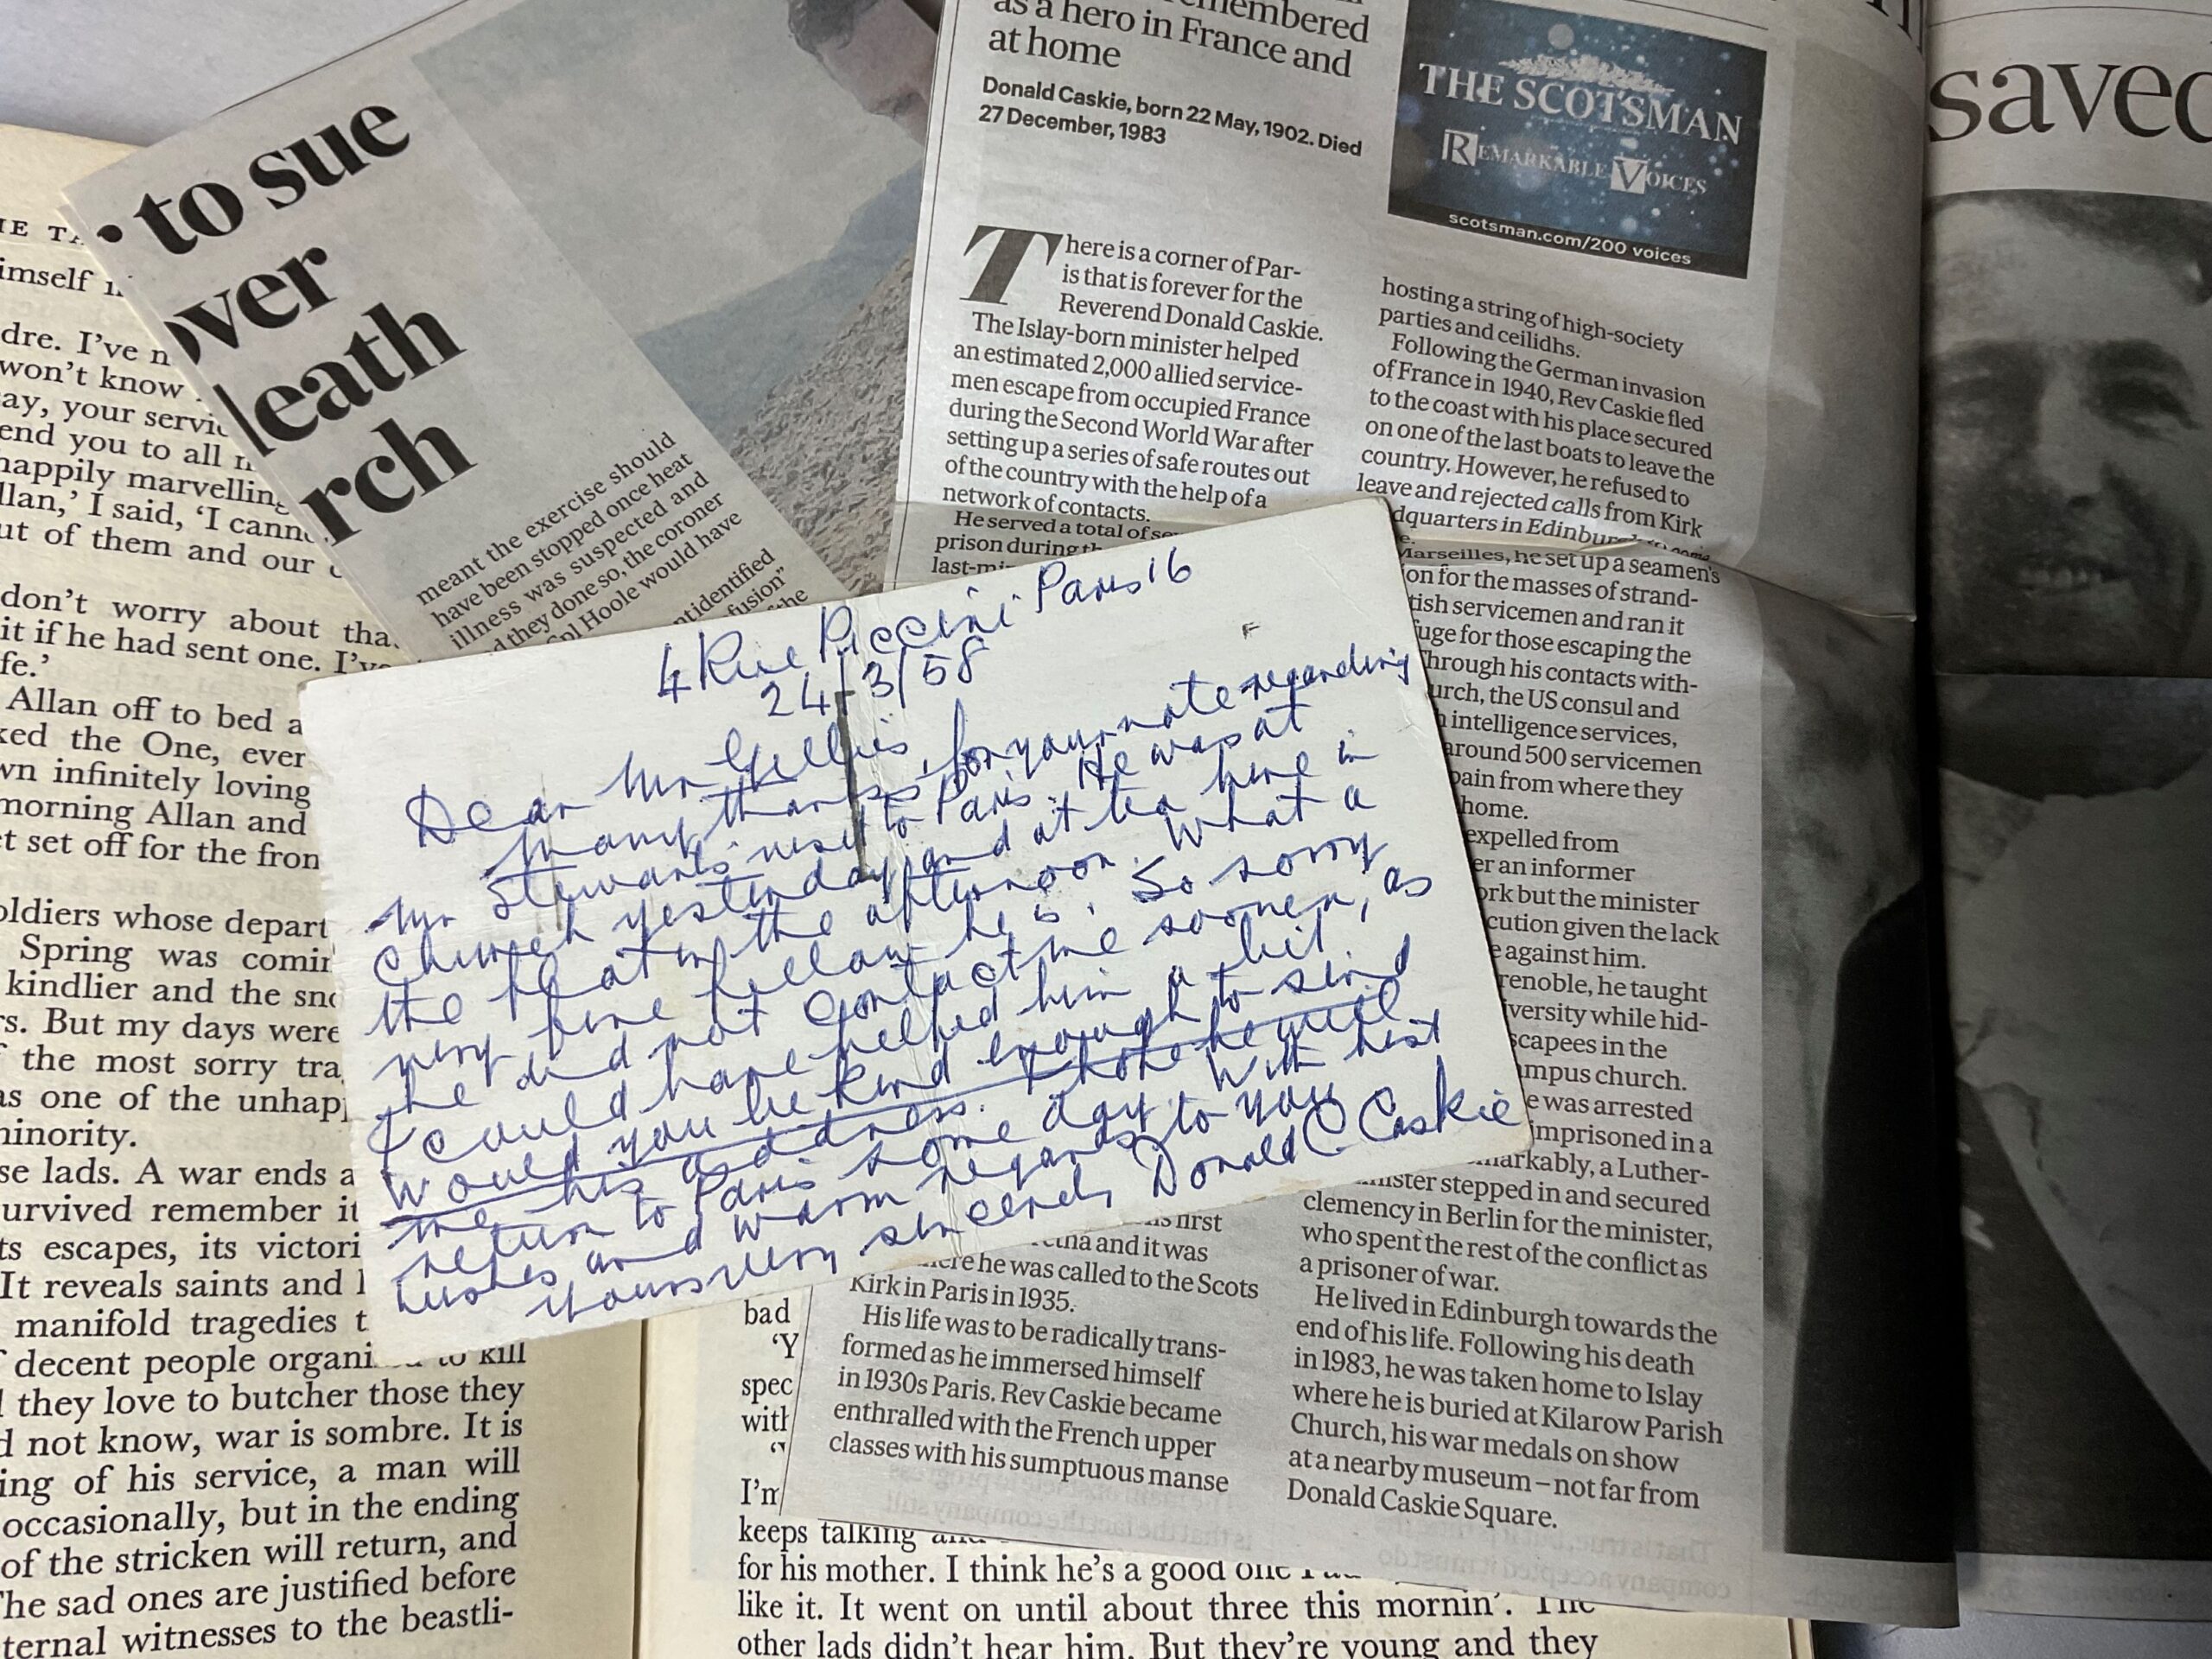 IE TA
imself i
dre. I've n
won't know
ay, your servic
end you to all
happily marvelling
llan,' I said, 'I canno
ut of them and our c
don't worry about tha
it if he had sent one. I've
fe.'
Allan off to bed a
ked the One, ever
wn infinitely loving
morning Allan and
et set off for the fron
oldiers whose depart
Spring was comin
kindlier and the sno
rs. But my days were
f the most sorry tra
as one of the unhapp
minority.
se lads. A war ends a
urvived remember it
ts escapes, its victori
It reveals saints and
manifold tragedies t
f decent people organi to kill
l they love to butcher those they
d not know, war is sombre. It is
ing of his service, a man will
occasionally, but in the ending
of the stricken will return, and
The sad ones are justified before
ternal witnesses to the beastli-
r to sue
over
leath
rch
meant the exercise should
have been stopped once heat
illness was suspected and
d they done so, the coroner
Cpl Hoole would have
ntidentified
fusion"
the
membered
as a hero in France and
at home
Donald Caskie, born 22 May, 1902. Died
27 December, 1983
There is a corner of Par-
is that is forever for the
Reverend Donald Caskie.
The Islay-born minister helped
an estimated 2,000 allied service-
men escape from occupied France
during the Second World War after
setting up a series of safe routes out
of the country with the help of a
network of contacts.
He served a total of se
prison during th
last-mi
THE SCOTSMAN
REMARKABLE VOICES
scotsman.com/200 voices
hosting a string of high-society
parties and ceilidhs.
Following the German invasion
of France in 1940, Rev Caskie fled
to the coast with his place secured
on one of the last boats to leave the
country. However, he refused to
leave and rejected calls from Kirk
dquarters in Edinburgh to come
e.
Marseilles, he set up a seamen's
on for the masses of strand-
tish servicemen and ran it
fuge for those escaping the
Through his contacts with-
urch, the US consul and
h intelligence services,
around 500 servicemen
pain from where they
home.
expelled from
er an informer
ork but the minister
cution given the lack
e against him.
renoble, he taught
versity while hid-
scapees in the
ampus church.
e was arrested
imprisoned in a
markably, a Luther-
nister stepped in and secured
clemency in Berlin for the minister,
who spent the rest of the conflict as
a prisoner of war.
He lived in Edinburgh towards the
end of his life. Following his death
in 1983, he was taken home to Islay
where he is buried at Kilarow Parish
Church, his war medals on show
at a nearby museum – not far from
Donald Caskie Square.
4 Rue Piccini Paris 16
24/3/58
Dear Mr Gillies,
Many thanks for your note regarding
Mr Stewart's visit to Paris. He was at
Church yesterday and at tea here in
the flat in the afternoon. What a
very fine fellow he is. So sorry
he did not contact me sooner, as
I could have helped him a bit.
Would you be kind enough to send
me his address. I hope he will
return to Paris some day. With best
wishes and warm regards to you
Yours very sincerely Donald C Caskie
is first
etna and it was
here he was called to the Scots
Kirk in Paris in 1935.
His life was to be radically trans-
formed as he immersed himself
in 1930s Paris. Rev Caskie became
enthralled with the French upper
classes with his sumptuous manse
saved
bad
'Y
spec
with
I'm
keeps talking and
for his mother. I think he's a good one
like it. It went on until about three this mornin'. The
other lads didn't hear him. But they're young and they